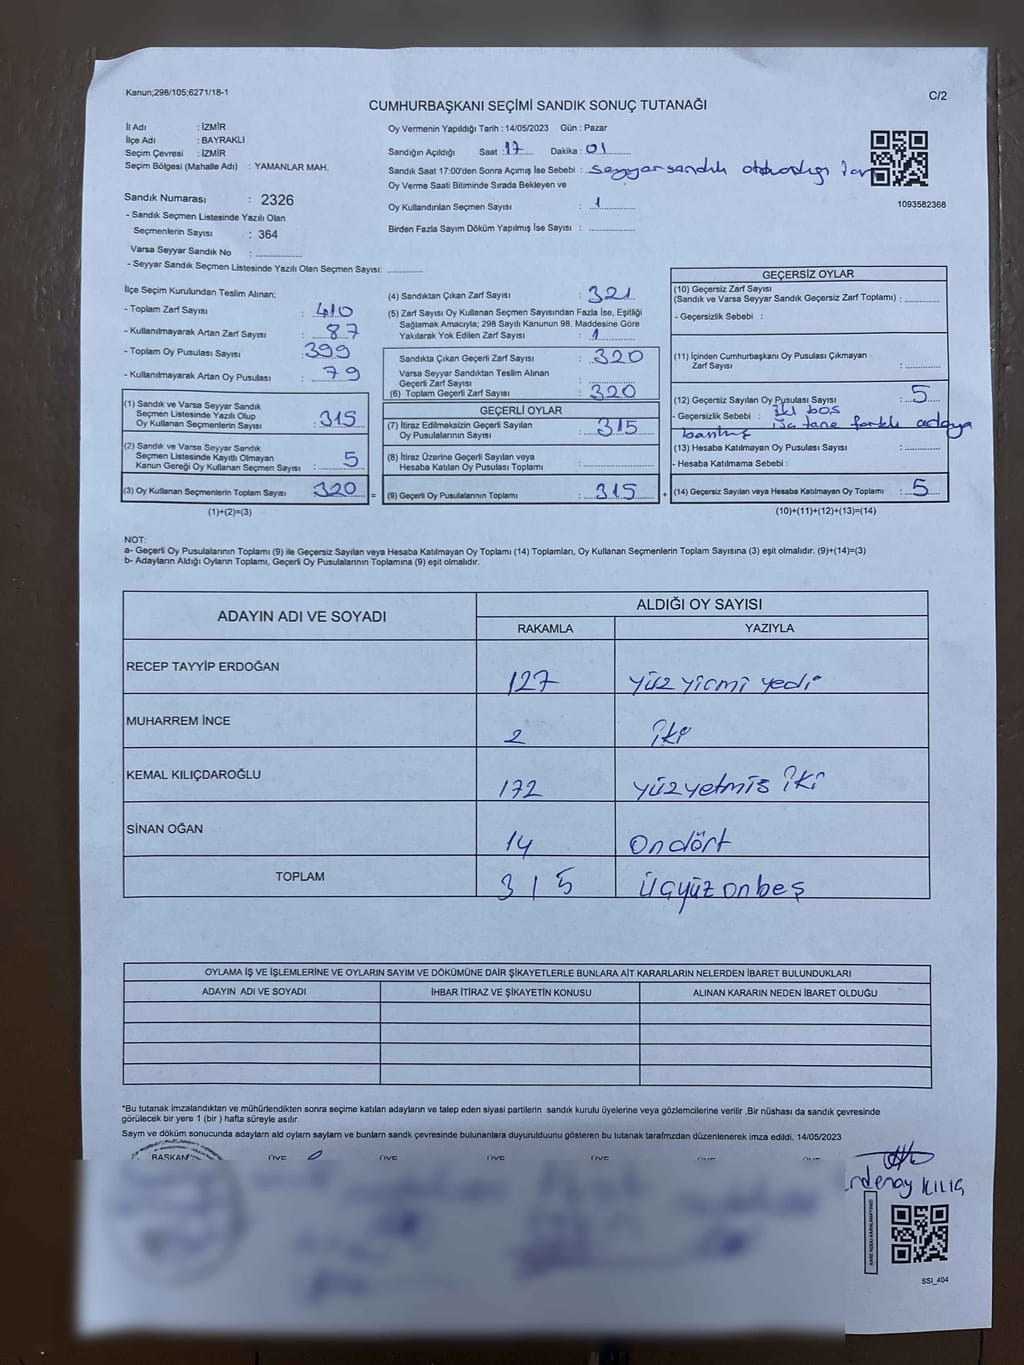 Kanun;298/105;6271/18-1
C/2
CUMHURBAŞKANI SEÇİMİ SANDIK SONUÇ TUTANAĞI
İl Adı : İZMİR
İlçe Adı : BAYRAKLI
Seçim Çevresi : İZMİR
Seçim Bölgesi (Mahalle Adı) : YAMANLAR MAH.
Sandık Numarası : 2326
- Sandık Seçmen Listesinde Yazılı Olan
Seçmenlerin Sayısı : 364
Varsa Seyyar Sandık No :
- Seyyar Sandık Seçmen Listesinde Yazılı Olan Seçmen Sayısı:
Oy Vermenin Yapıldığı Tarih : 14/05/2023 Gün : Pazar
Sandığın Açıldığı Saat : 17 Dakika : 01
Sandık Saat 17:00'den Sonra Açımış İse Sebebi : seyyar sandık
Oy Verme Saati Bitiminde Sırada Bekleyen ve
Oy Kullandırılan Seçmen Sayısı : 1
Birden Fazla Sayım Döküm Yapılmış İse Sayısı :
1093582368
İlçe Seçim Kurulundan Teslim Alınan;
- Toplam Zarf Sayısı : 410
- Kullanılmayarak Artan Zarf Sayısı : 87
- Toplam Oy Pusulası Sayısı : 399
- Kullanılmayarak Artan Oy Pusulası : 79
(1) Sandık ve Varsa Seyyar Sandık
Seçmen Listesinde Yazılı Olup
Oy Kullanan Seçmenlerin Sayısı : 315
(2) Sandık ve Varsa Seyyar Sandık
Seçmen Listesinde Kayıtlı Olmayan
Kanun Gereği Oy Kullanan Seçmen Sayısı : 5
(3) Oy Kullanan Seçmenlerin Toplam Sayısı : 320 =
(1)+(2)=(3)
(4) Sandıktan Çıkan Zarf Sayısı : 321
(5) Zarf Sayısı Oy Kullanan Seçmen Sayısından Fazla İse, Eşitliği
Sağlamak Amacıyla; 298 Sayılı Kanunun 98. Maddesine Göre
Yakılarak Yok Edilen Zarf Sayısı : 1
Sandıkta Çıkan Geçerli Zarf Sayısı : 320
Varsa Seyyar Sandıktan Teslim Alınan
Geçerli Zarf Sayısı :
(6) Toplam Geçerli Zarf Sayısı : 320
GEÇERLİ OYLAR
(7) İtiraz Edilmeksizin Geçerli Sayılan
Oy Pusulalarının Sayısı : 315
(8) İtiraz Üzerine Geçerli Sayılan veya
Hesaba Katılan Oy Pusulası Toplamı :
(9) Geçerli Oy Pusulalarının Toplamı : 315 +
GEÇERSİZ OYLAR
(10) Geçersiz Zarf Sayısı
(Sandık ve Varsa Seyyar Sandık Geçersiz Zarf Toplamı) :
- Geçersizlik Sebebi :
(11) İçinden Cumhurbaşkanı Oy Pusulası Çıkmayan
Zarf Sayısı :
(12) Geçersiz Sayılan Oy Pusulası Sayısı : 5
- Geçersizlik Sebebi : iki boş
üç tane farklı adaya
basılmış
(13) Hesaba Katılmayan Oy Pusulası Sayısı :
- Hesaba Katılmama Sebebi :
(14) Geçersiz Sayılan veya Hesaba Katılmayan Oy Toplamı : 5
(10)+(11)+(12)+(13)=(14)
NOT:
a- Geçerli Oy Pusulalarının Toplamı (9) ile Geçersiz Sayılan veya Hesaba Katılmayan Oy Toplamı (14) Toplamları, Oy Kullanan Seçmenlerin Toplam Sayısına (3) eşit olmalıdır. (9)+(14)=(3)
b- Adayların Aldığı Oyların Toplamı, Geçerli Oy Pusulalarının Toplamına (9) eşit olmalıdır.
ADAYIN ADI VE SOYADI
ALDIĞI OY SAYISI
RAKAMLA YAZIYLA
RECEP TAYYİP ERDOĞAN 127 yüz yirmi yedi
MUHARREM İNCE 2 iki
KEMAL KILIÇDAROĞLU 172 yüzyetmiş iki
SİNAN OĞAN 14 Ondört
TOPLAM 315 üçyüz onbeş
OYLAMA İŞ VE İŞLEMLERİNE VE OYLARIN SAYIM VE DÖKÜMÜNE DAİR ŞİKAYETLERLE BUNLARA AİT KARARLARIN NELERDEN İBARET BULUNDUKLARI
ADAYIN ADI VE SOYADI İHBAR İTİRAZ VE ŞİKAYETİN KONUSU ALINAN KARARIN NEDEN İBARET OLDUĞU
*Bu tutanak imzalandıktan ve mühürlendikten sonra seçime katılan adayların ve talep eden siyasi partilerin sandık kurulu üyelerine veya gözlemcilerine verilir .Bir nüshası da sandık çevresinde
görülecek bir yere 1 (bir ) hafta süreyle asılır.
Sayım ve döküm sonucunda adayların ald oyların sayların ve bunların sandk çevresinde bulunanlara duyurulduunu gösteren bu tutanak tarafımzdan düzenlenerek imza edildi. 14/05/2023
BAŞKAN ÜYE ÜYE ÜYE ÜYE ÜYE ÜYE
KILIÇ
SSI_404